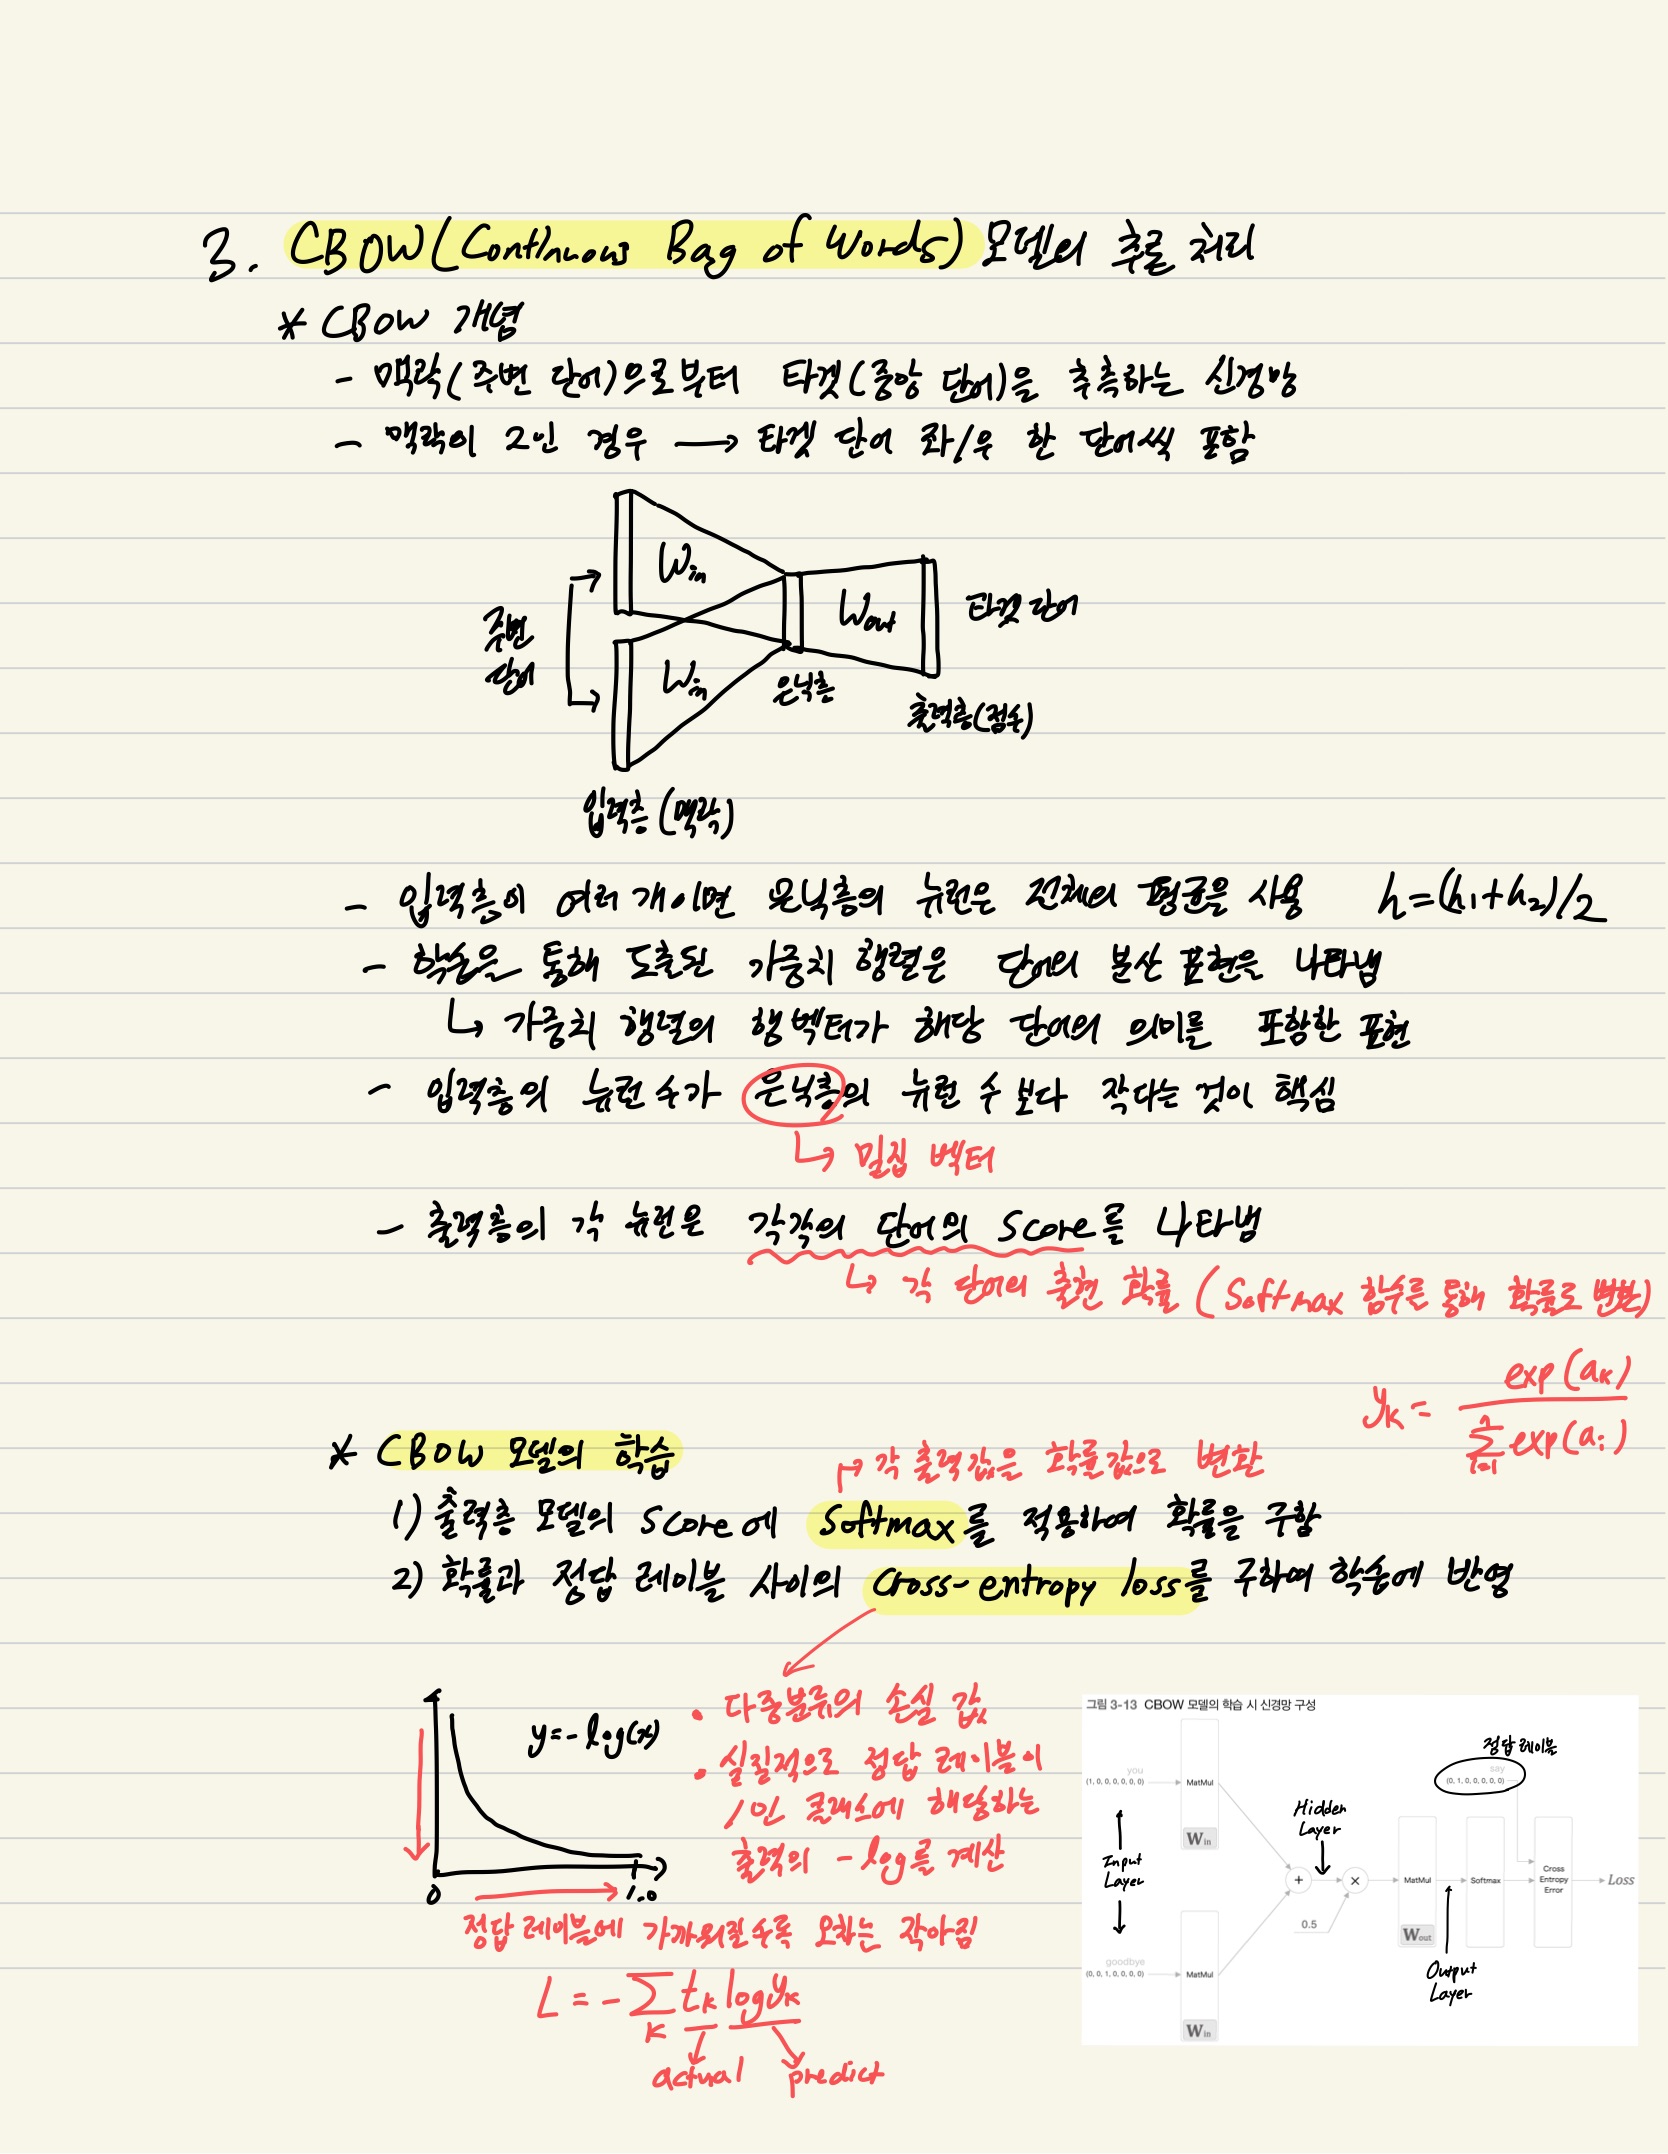 3. CBOW(Continuous Bag of Words) 모델의 추론 처리
* CBOW 개념
- 맥락(주변 단어)으로부터 타겟(중앙 단어)을 추측하는 신경망
- 맥락이 2인 경우 → 타겟 단어 좌/우 한 단어씩 포함
Win
Wout
타겟 단어
주변
단어
Win
은닉층
출력층(점수)
입력층(맥락)
- 입력층이 여러 개이면 은닉층의 뉴런은 전체의 평균을 사용 h=(h1+h2)/2
- 학습을 통해 도출된 가중치 행렬은 단어의 분산 표현을 나타냄
↳ 가중치 행렬의 행벡터가 해당 단어의 의미를 포함한 표현
- 입력층의 뉴런 수가 은닉층의 뉴런 수 보다 작다는 것이 핵심
↳ 밀집 벡터
- 출력층의 각 뉴런은 각각의 단어의 Score를 나타냄
↳ 각 단어의 출현 확률 (Softmax 함수를 통해 확률로 변환)
yk = exp(ak) / Σ i=1 n exp(ai)
* CBOW 모델의 학습
각 출력값을 확률값으로 변환
1) 출력층 모델의 Score에 Softmax를 적용하여 확률을 구함
2) 확률과 정답 레이블 사이의 Cross-entropy loss를 구하여 학습에 반영
y=-log(x)
0
1.0
• 다중분류의 손실 값
• 실질적으로 정답 레이블이
1인 클래스에 해당하는
출력의 -log를 계산
정답 레이블에 가까워질수록 오차는 작아짐
L = -Σ k tk log yk
actual predict
그림 3-13 CBOW 모델의 학습 시 신경망 구성
정답 레이블
say
(0, 1, 0, 0, 0, 0, 0)
you
(1, 0, 0, 0, 0, 0, 0)
MatMul
Win
Hidden
Layer
Input
Layer
+
×
0.5
MatMul
Wout
Softmax
Cross
Entropy
Error
Loss
Output
Layer
goodbye
(0, 0, 1, 0, 0, 0, 0)
MatMul
Win